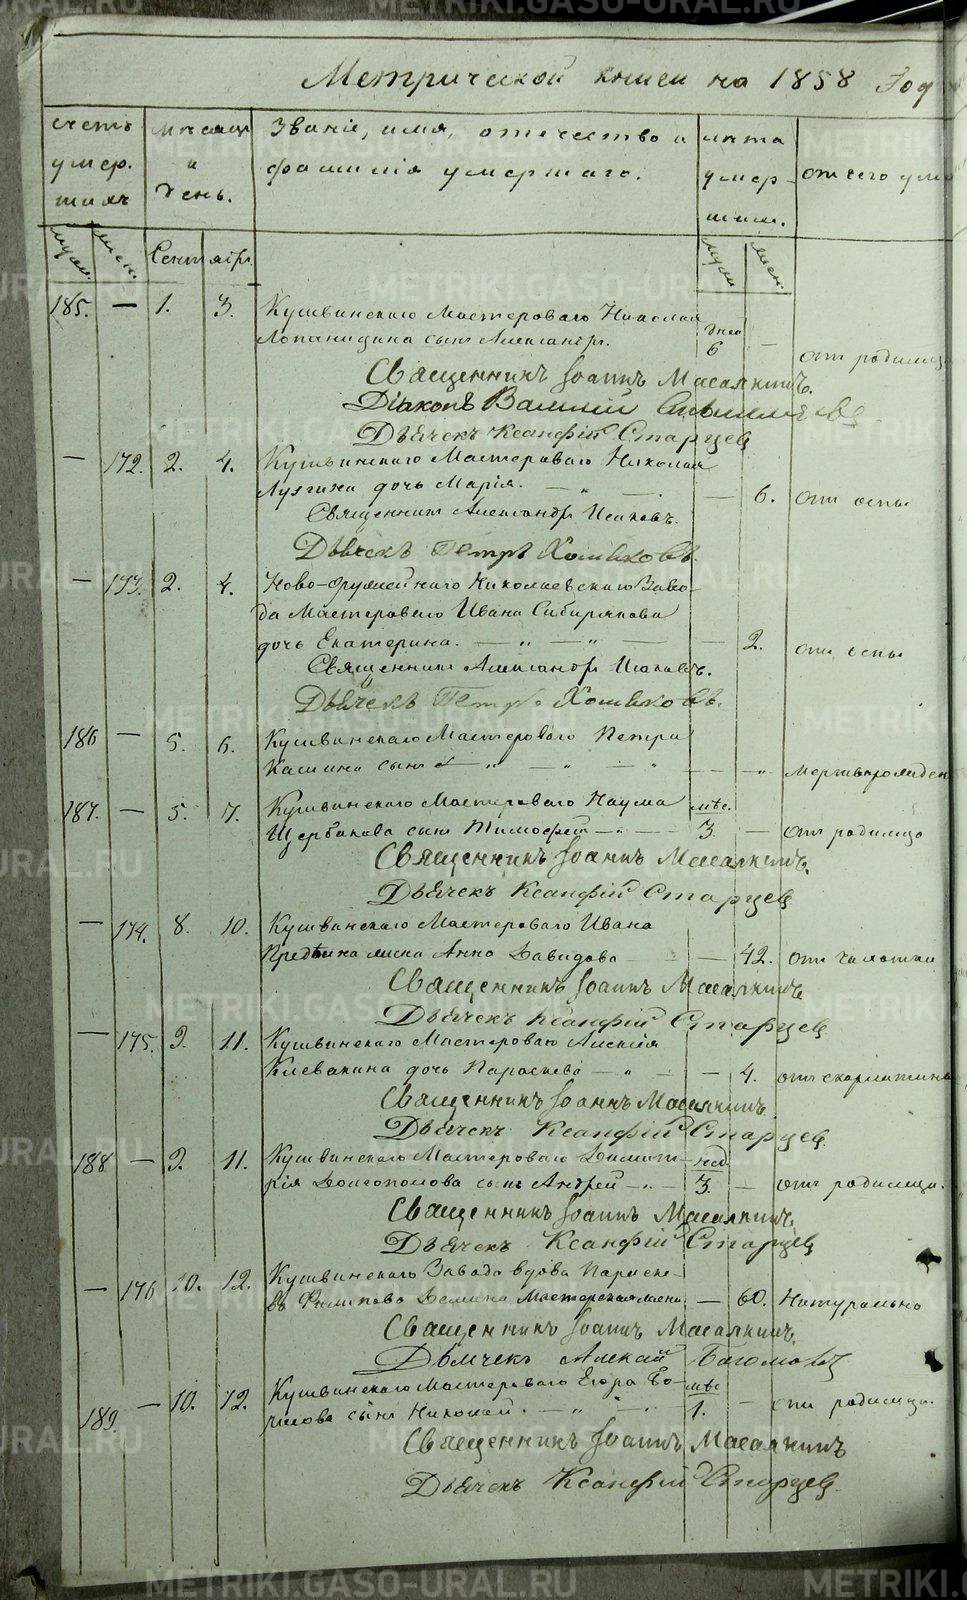 Метрической книги на 1858 Год
счетъ умер. шихъ
мѣсяцъ и день.
Званіе, имя, отечество и фамилія умершаго.
лѣта умер- шихъ.
отъ чего уме
муж. жен. Сентября муж. жен.
185. — 1. 3. Кушвинскаго Мастероваго Николая
сынъ Александръ. дней 6 — отъ родимца
Священникъ Іоаннъ Масалкинъ.
Діаконъ Василій
Дьячекъ Ксанфій Старцев
— 172. 2. 4. Кушвинскаго Мастероваго Николая
Лузгина дочь Марія. — 6. отъ оспы
Священникъ Александръ Исаковъ.
Дьячекъ Петръ Хомяковъ.
— 173. 2. 4. Ново-Оружейнаго Николаевскаго Заво-
да Мастероваго Ивана Сибирякова
дочь Екатерина. — 2. отъ оспы
Священникъ Александръ Исаковъ.
Дьячекъ Петръ Хомяковъ.
186 — 5. 6. Кушвинскаго Мастероваго Петра
Кашина сынъ — мертворожден
187. — 5. 7. Кушвинскаго Мастероваго Наума
Щербакова сынъ Тимофей — мѣс. 3. — отъ родимца
Священникъ Іоаннъ Масалкинъ.
Дьячекъ Ксанфій Старцев
— 174. 8. 10. Кушвинскаго Мастероваго Ивана
жена Анна Давидова — 42. отъ чахотки
Священникъ Іоаннъ Масалкинъ
Дьячекъ Ксанфій Старцев
— 175. 9. 11. Кушвинскаго Мастероваго Алексія
Клевакина дочь Параскева — 4. отъ скарлатины
Священникъ Іоаннъ Масалкинъ.
Дьячекъ Ксанфій Старцев
188 — 9. 11. Кушвинскаго Мастероваго Димит-
рія Долгополова сынъ Андрей — нед 3. — отъ родимца.
Священникъ Іоаннъ Масалкинъ
Дьячекъ Ксанфій Старцев
— 176 10. 12. Кушвинскаго Завода вдова Параске-
ва Филипова Демина Мастерская жена — 60. Натурально
Священникъ Іоаннъ Масалкинъ
Дьячекъ Алексѣй
189. — 10. 12. Кушвинскаго Мастероваго Егора
сынъ Николай. мѣс 1. — отъ родимца.
Священникъ Іоаннъ Масалкинъ
Дьячекъ Ксанфій Старцев
METRIKI.GASO-URAL.RU